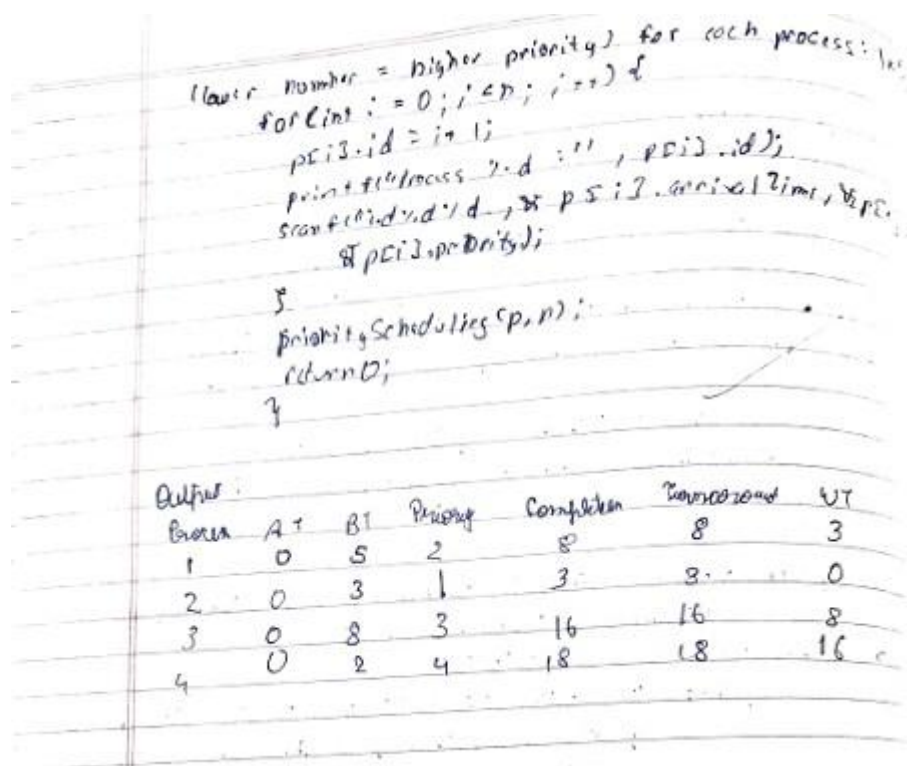 (lower number = higher priority) for each process:
for(int i = 0; i<n; i++) {
p[i].id = i+1;
printf("Process %d :", p[i].id);
scanf("%d%d%d, & p[i].arrivalTime, &p[.
& p[i].priority);
}
priorityScheduling(p,n);
return 0;
}
Output :
Process AT BT Priority Completion Turnaround WT
1 0 5 2 8 8 3
2 0 3 1 3 3 0
3 0 8 3 16 16 8
4 0 2 4 18 18 16